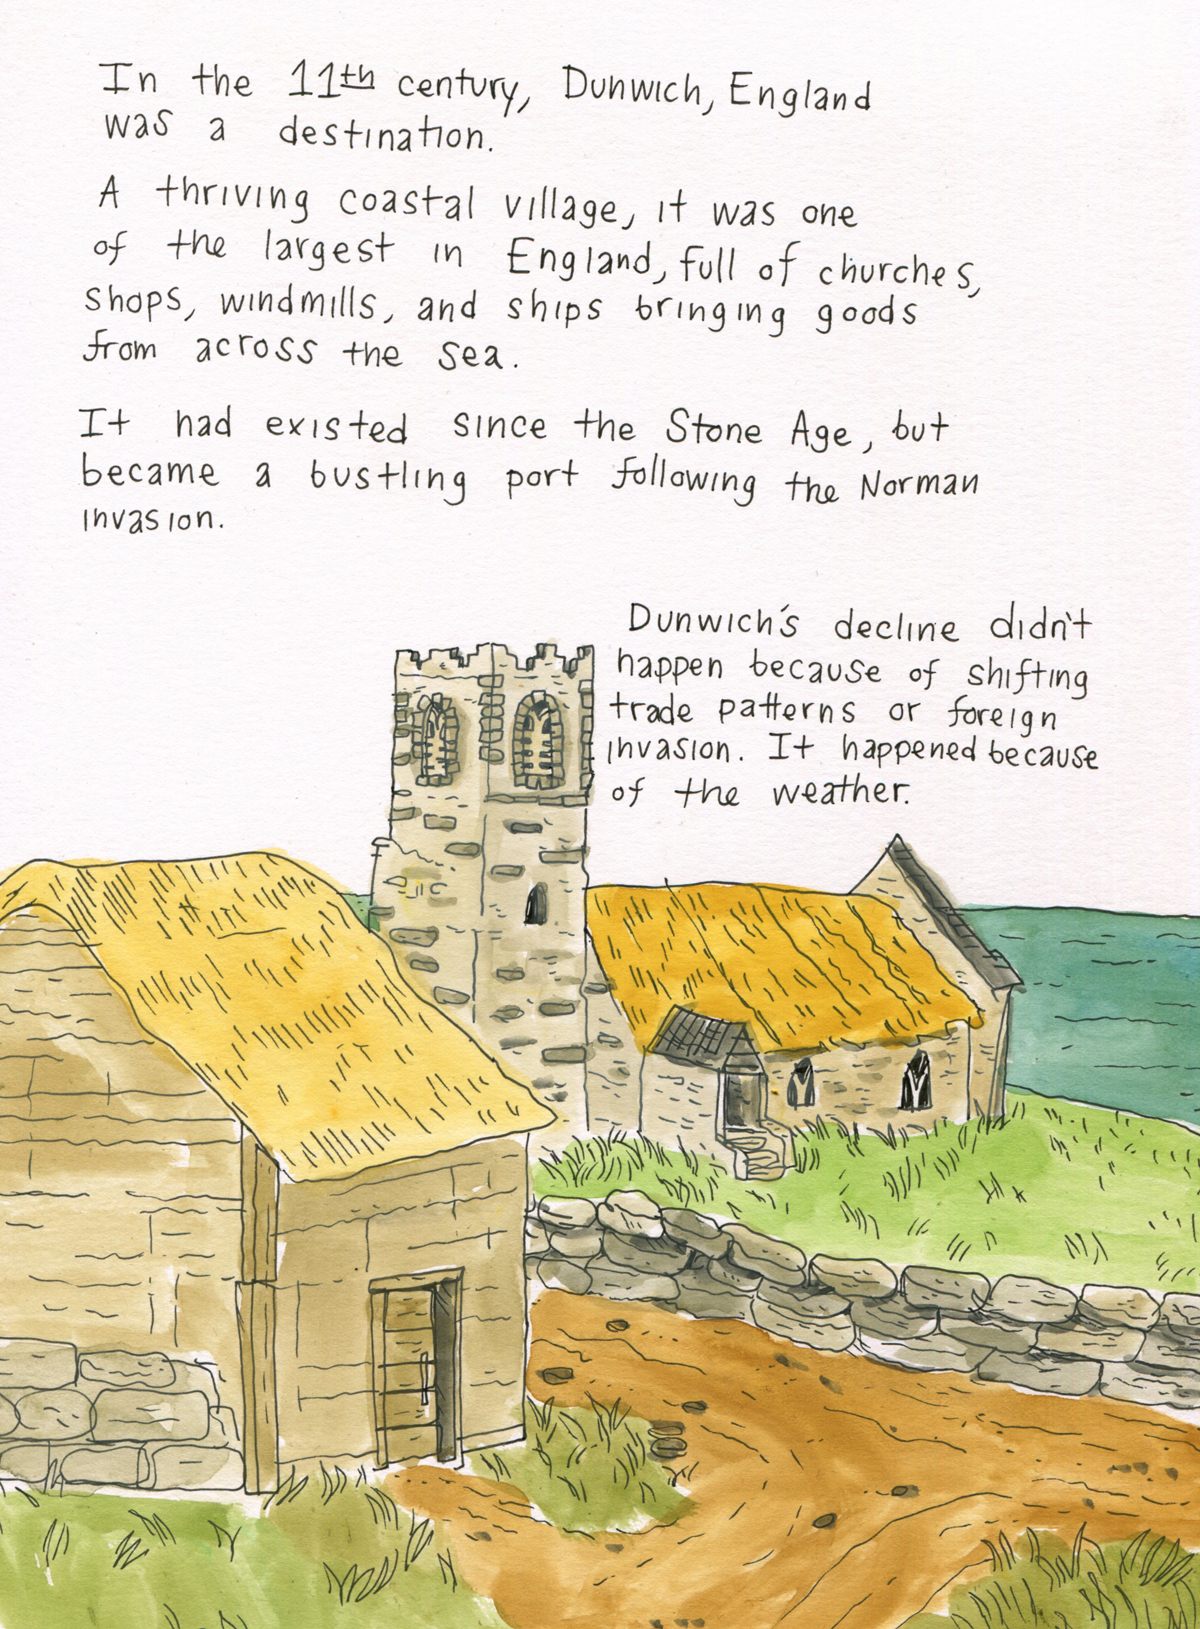 In the 11th century, Dunwich, England
was a destination.
A thriving coastal village, it was one
of the largest in England, full of churches,
shops, windmills, and ships bringing goods
from across the sea.
It had existed since the Stone Age, but
became a bustling port following the Norman
invasion.
Dunwich's decline didn't
happen because of shifting
trade patterns or foreign
invasion. It happened because
of the weather.